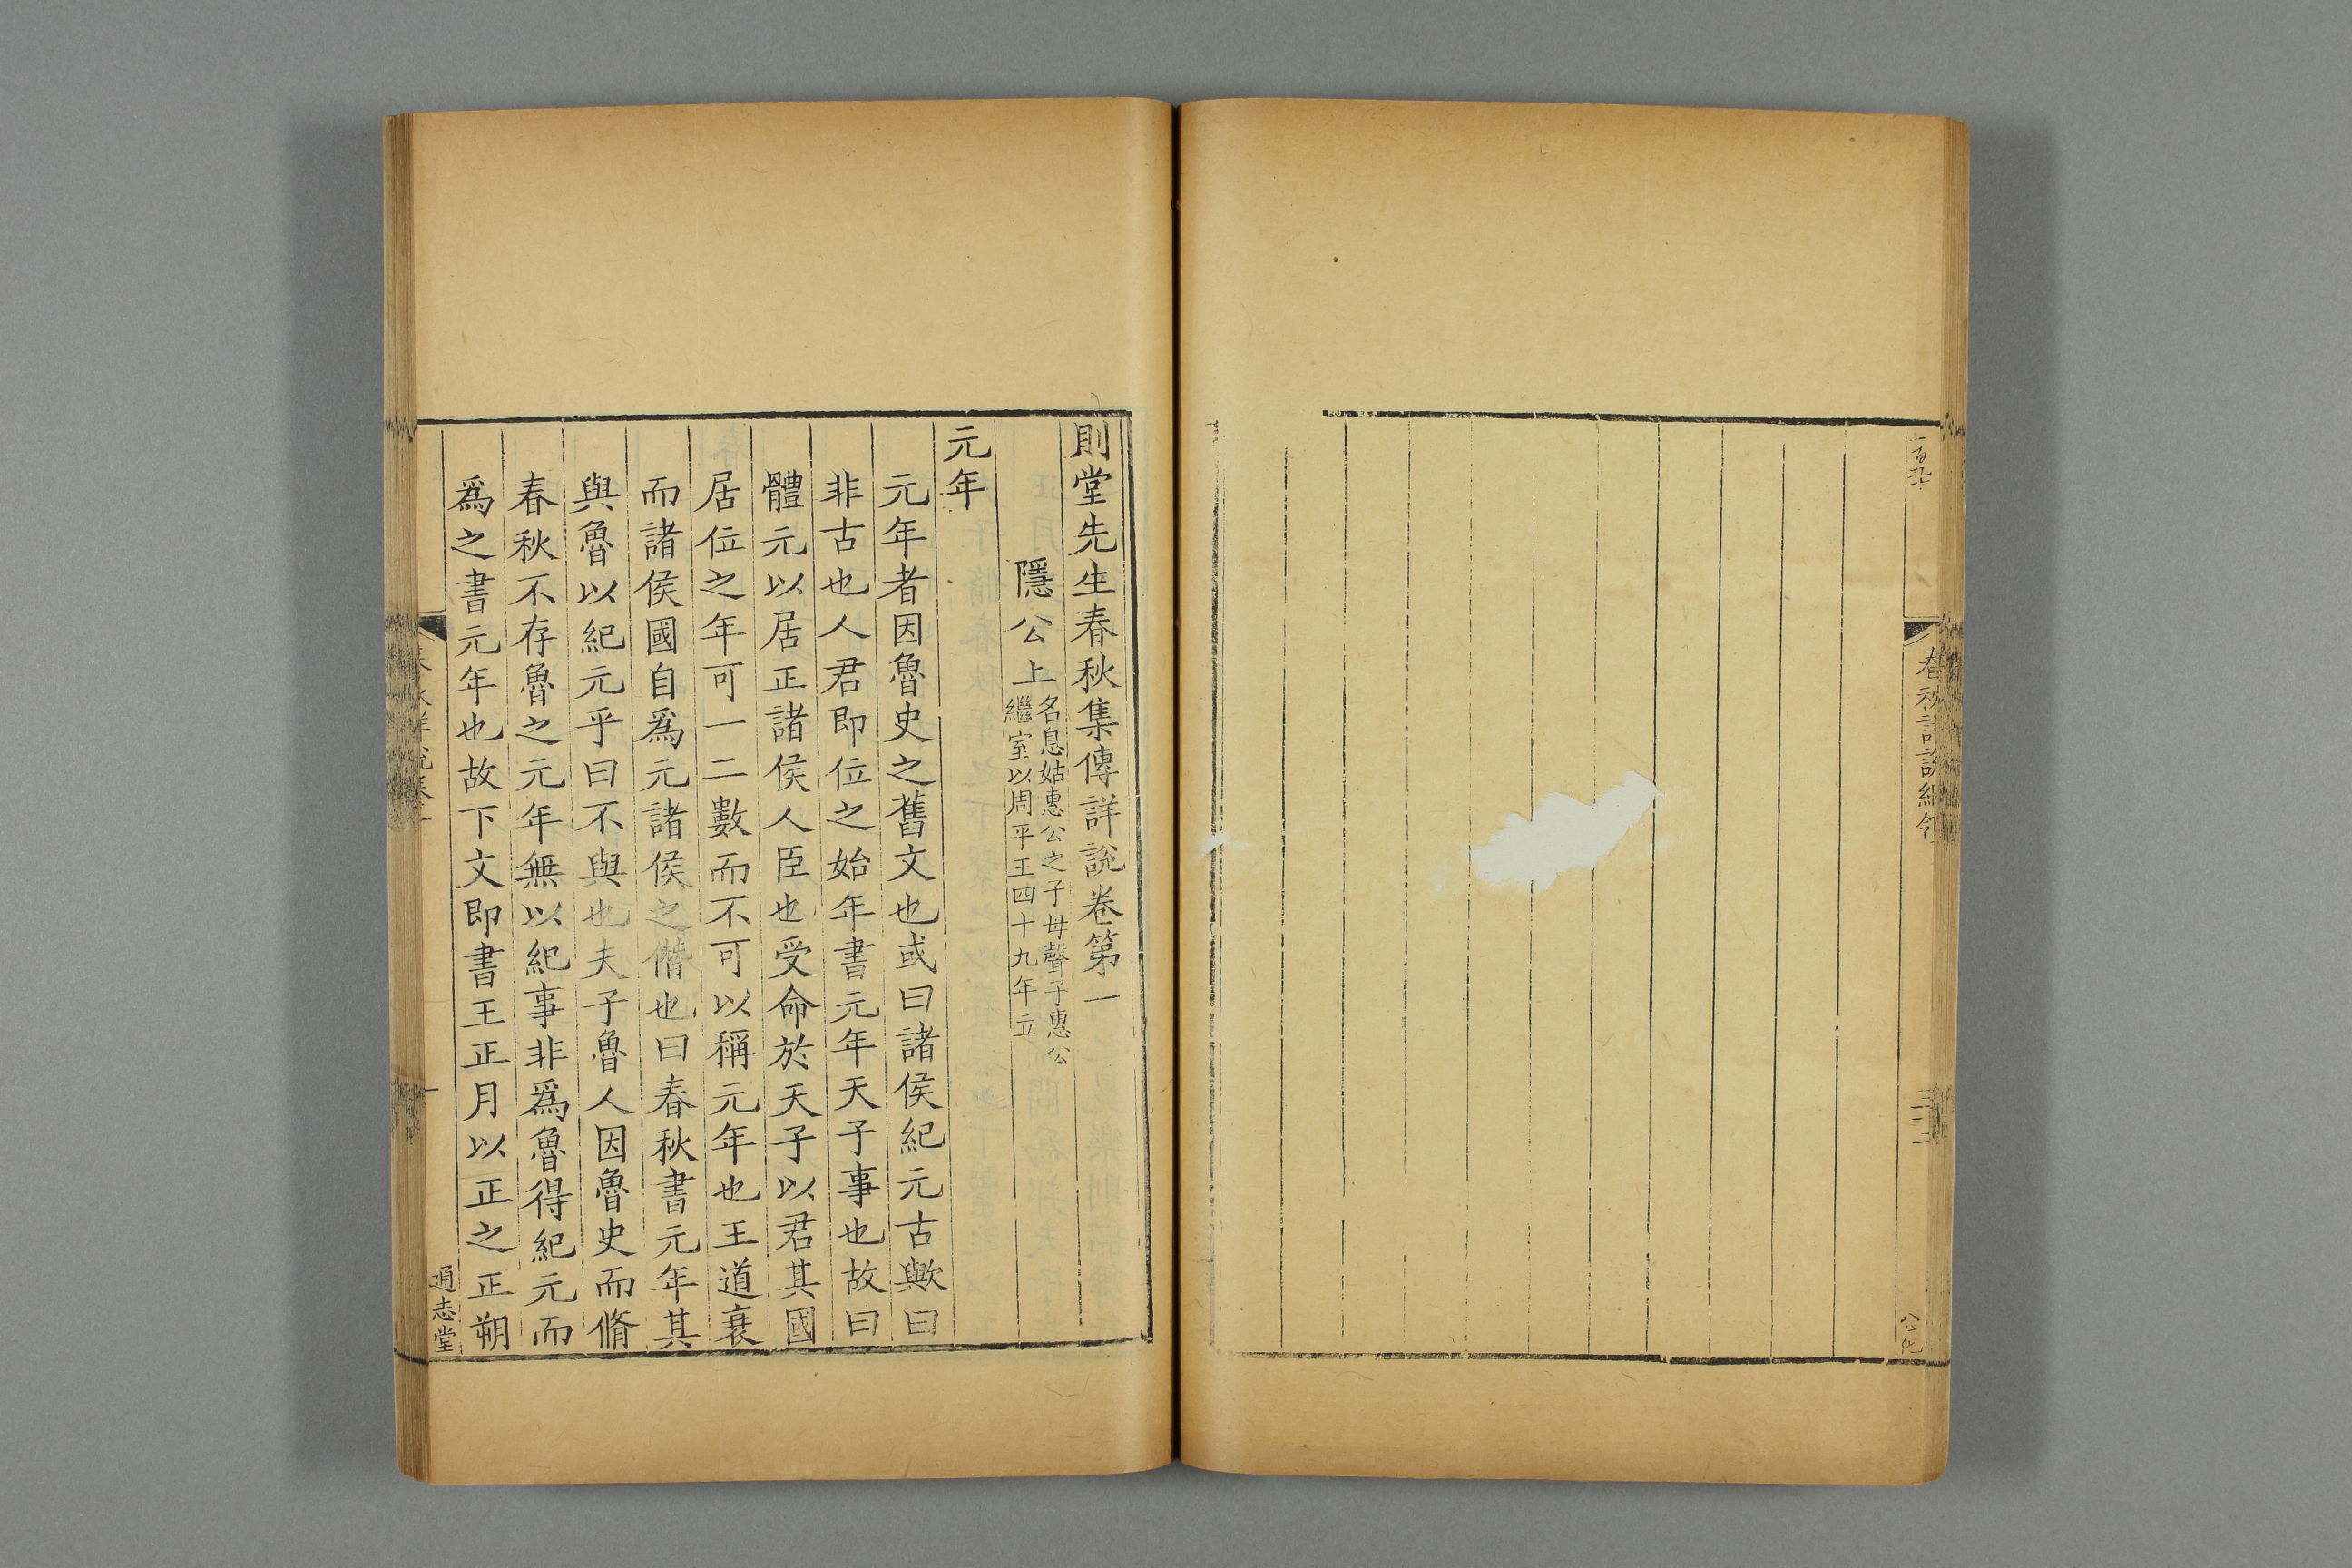 春秋詳說綱領
則堂先生春秋集傳詳說卷第一
隱公上 名息姑惠公之子母聲子惠公
繼室以周平王四十九年立
元年
元年者因魯史之舊文也或曰諸侯紀元古歟曰
非古也人君即位之始年書元年天子事也故曰
體元以居正諸侯人臣也受命於天子以君其國
居位之年可一二數而不可以稱元年也王道衰
而諸侯國自爲元諸侯之僭也曰春秋書元年其
與魯以紀元乎曰不與也夫子魯人因魯史而脩
春秋不存魯之元年無以紀事非爲魯得紀元而
爲之書元年也故下文即書王正月以正之正朔
春秋詳說卷一
一
通志堂